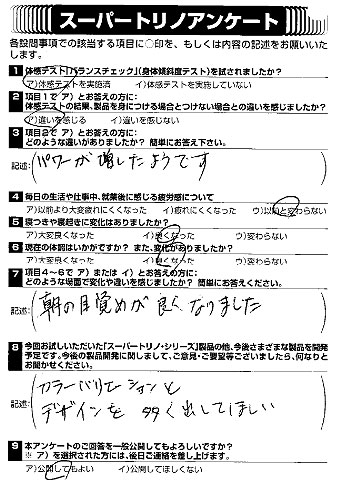 スーパートリノアンケート
各設問事項での該当する項目に○印を、もしくは内容の記述をお願いいた
します。
1 体感テスト「バランスチェック」(身体傾斜度テスト)を試されましたか?
ア)体感テストを実施済 イ)体感テストを実施していない
2 項目1で ア)とお答えの方に:
体感テストの結果、製品を身につける場合とつけない場合との違いを感じましたか?
ア)違いを感じる イ)違いを感じない
3 項目2で ア)とお答えの方に:
どのような違いがありましたか? 簡単にお答え下さい。
記述: パワーが増したようです
4 毎日の生活や仕事中、就業後に感じる疲労感について
ア)以前より大変疲れにくくなった イ)疲れにくくなった ウ)以前と変わらない
5 寝つきや寝起きに変化はありましたか?
ア)大変良くなった イ)良くなった ウ)変わらない
6 現在の体調はいかがですか? また、変化がありましたか?
ア)大変良くなった イ)良くなった ウ)変わらない
7 項目4~6で ア)または イ)とお答えの方に:
どのような場面で変化や違いを感じましたか? 簡単にお答えください。
記述: 朝の目覚めが良くなりました
8 今回お試しいただいた「スーパートリノ・シリーズ」製品の他、今後さまざまな製品を開発
予定です。今後の製品開発に関しまして、ご意見・ご要望等ございましたら、何なりと
お聞かせください。
記述: カラーバリエーションと
デザインを多く出してほしい
9 本アンケートのご回答を一般公開してもよろしいですか?
※ ア)を選択された方には、後日ご連絡を差し上げます。
ア)公開してもよい イ)公開してほしくない